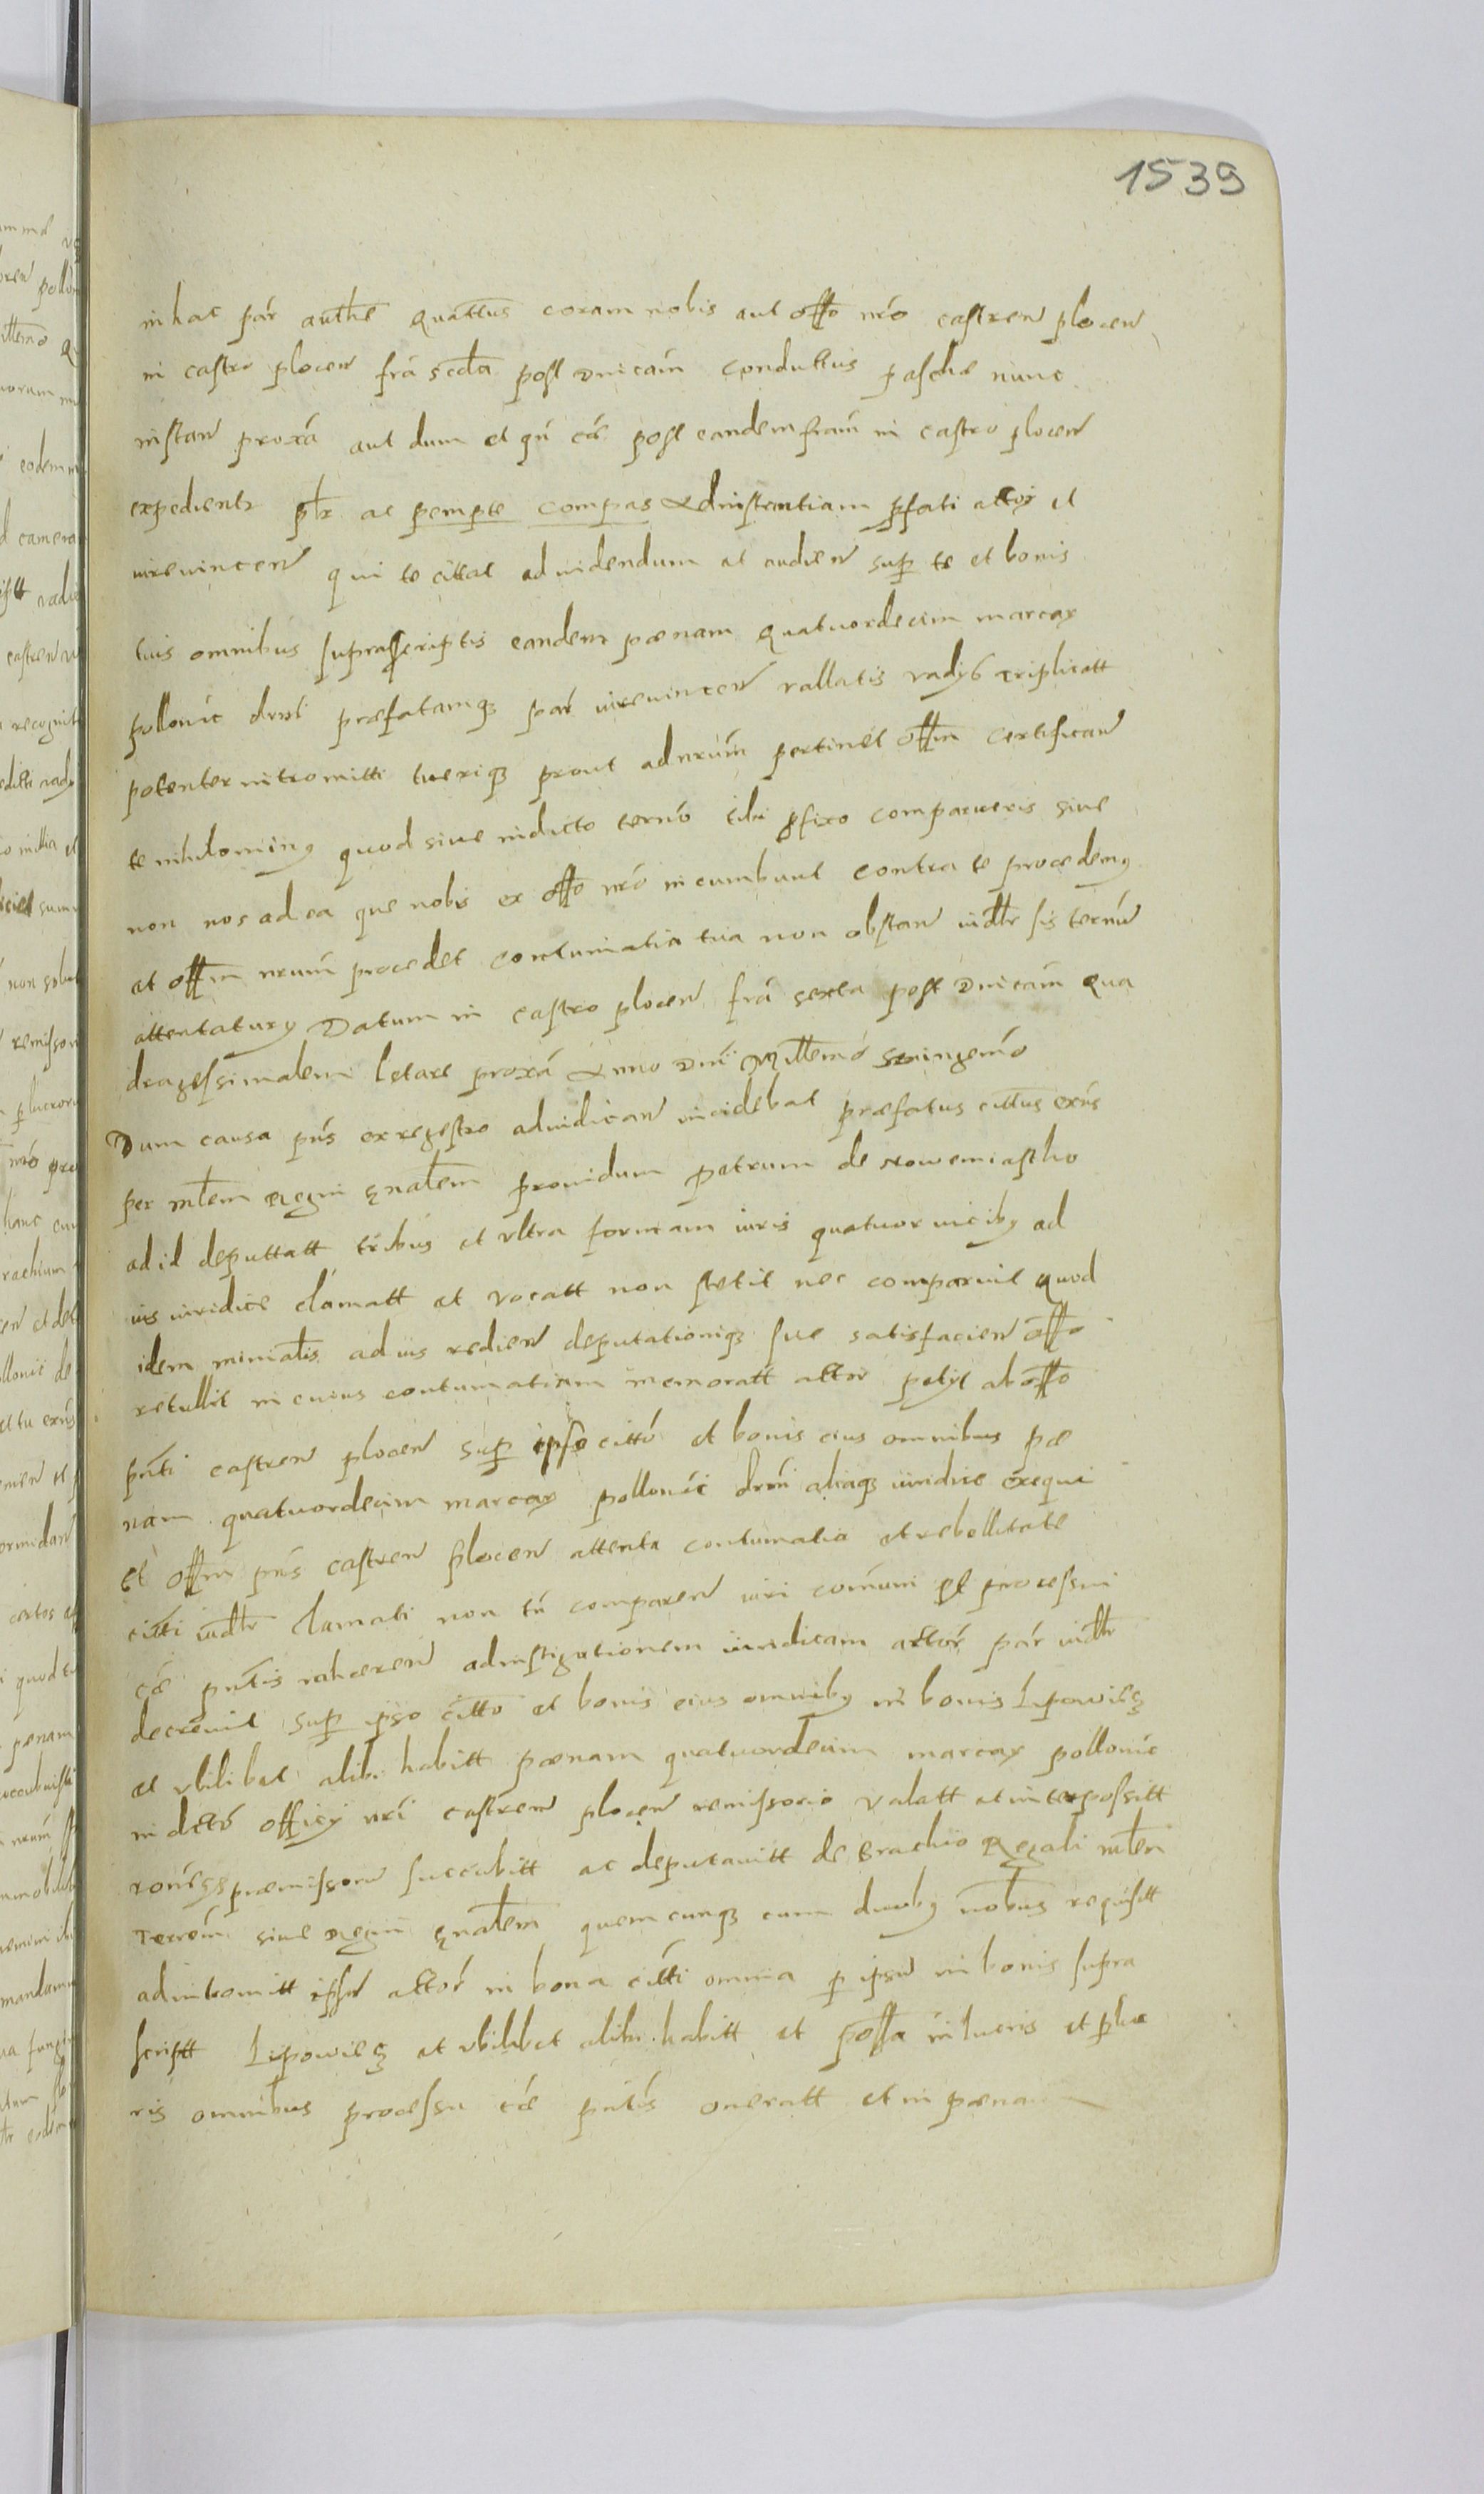 1539
in hac pár authē quattus coram nobis aut offo nró castren plocen
in castro plocen frá secda post dnicam conductus paschæ nunc
instan proxá aut dum et qń cáe post eandem friam in castro plocen
expedientr plr ac pempte compas ad instantiam pfati actor et
iurevincen qui te citat ad videndum at audien sup te et bonis
tuis omnibus suprascriptis eandem pænam quatuordecim marcar
pollonic drni præfatamq par iurevincen vallatis vadys triplicatt
potenter intromitti tueriq prout ad nrum pertinet offm certifican
te nihilominq quod sive in dicto termo tibi pfixo comparueris sive
non nos ad ea que nobis ex offo nró incumbunt contra te procedemq
et offm nrum procedet contumatia tua non obstan iudlr sis termu
attentaturq Datum in castro plocen fria sexta post Dnicam qua
dragessimalem letare proxá Anno Dni Millemo sexingemó
Dum causa pńs ex regestro adiudican incidebat præfatus cittus exús
per mlem Regni gnalem providum petrum de nowemiastho
ad id deputtatt tribus et vltra formam iuris quatuor vicibq ad
ius iuridice clamatt et vocatt non stetit nec comparuit quod
idem minialis ad ius redien deputationiq sue satisfacien offo
retullit in cuius contumatiam memoratt actor petyt ab offo
pnti castren plocen sup ipso citto et bonis eius omnibus pæ
nam quatuordecim marcar pollonic drni aliaq iuridice exequi
Et offm pns castren plocen attenta contumatia et rebellitate
citti iudlr clamati non tń comparen iuri comuni et processui
cáe pntis inhæren ad instigationem iuridicam actor par iudlr
decrevit sup ipso citto et bonis eius omnibq in bonis Lipowiecz
et vbilibet alibi habitt pænam quatuordecim marcar pollonic
in dcto officy nri castren plocen remissorio valatt et interpossitt
rone præmissoru succubitt ac deputavitt de brachio Regali mlem
Terrem sive Regni gnalem quemcunq cum duobq nobus requisitt
ad intromitt ipsu actor in bona citti omnia p ipsu in bonis supra
scriptt Lipowiecz et vbilibet alibi habitt et possa in lucris et pluc
ris omnibus processu cáe pntis oneratt et in pæna